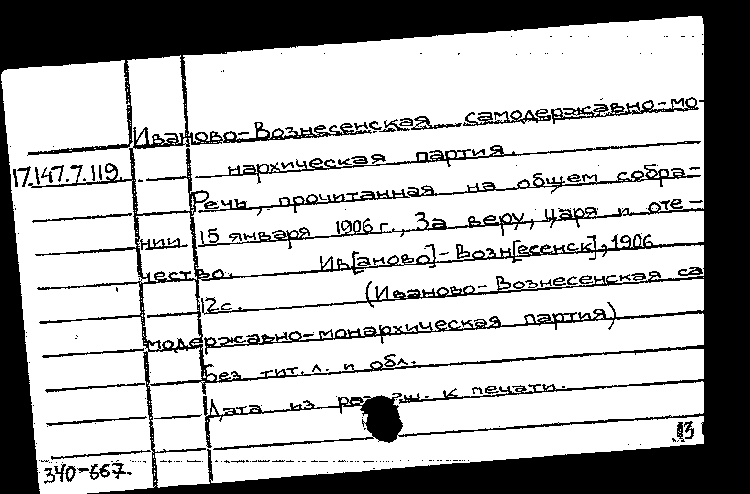 Иваново-Вознесенская самодержавно-мо-
17.147.7.119. нархическая партия.
Речь, прочитанная на общем собра-
нии 15 января 1906 г., За веру, царя и оте-
чество. Ив[аново]-Возн[есенск], 1906
12с. (Иваново-Вознесенская са
модержавно-монархическая партия)
Без тит. л. и обл.
Дата из к печати.
13
340-667.